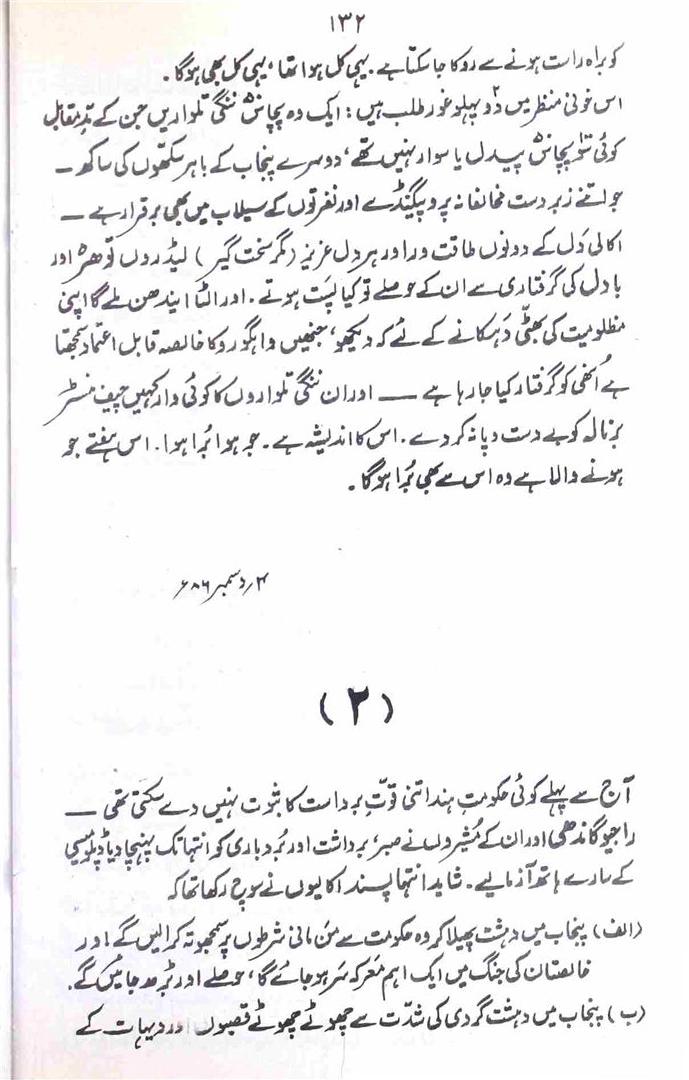 ۱۳۲
کو براہ راست ہونے سے روکا جا سکتا ہے۔ یہی کل ہوا تھا، یہی کل بھی ہوگا۔
اس خونی منظر میں دو۲ پہلو غور طلب ہیں: ایک وہ پچاس۵۰ ننگی تلواریں جن کے مدِ مقابل
کوئی سو پچاس پیدل یا سوار نہیں تھے، دوسرے پنجاب کے باہر سکھوں کی ساکھ —
جو اتنے زبردست مخالفانہ پروپیگنڈے اور نفرتوں کے سیلاب میں بھی برقرار ہے —
اکالی دَل کے دونوں طاقت ور اور ہر دل عزیز (مگر سخت گیر) لیڈروں توہڑہ اور
بادل کی گرفتاری سے ان کے حوصلے تو کیا پست ہوتے۔ اور الٹا ایندھن ملے گا اپنی
مظلومیت کی بھٹی دَہکانے کے لئے کہ دیکھو، جنھیں واہگورو کا خالصہ قابل اعتماد سمجھتا
ہے اُنھی کو گرفتار کیا جا رہا ہے — اور ان ننگی تلواروں کا کوئی وار کہیں چیف منسٹر
برنالہ کو بے دست و پا نہ کر دے۔ اس کا اندیشہ ہے۔ جو ہوا بُرا ہوا۔ اس ہفتے جو
ہونے والا ہے وہ اس سے بھی بُرا ہوگا۔
دسمبر ۸۶ء
(۲)
آج سے پہلے کوئی حکومتِ ہند اتنی قوّتِ برداشت کا ثبوت نہیں دے سکتی تھی —
راجیو گاندھی اور ان کے مُشیروں نے صبر، برداشت اور بُردباری کو انتہا تک پہنچا دیا ڈپلومیسی
کے سارے ہاتھ آزمالیے۔ شاید انتہا پسند اکالیوں نے سوچ رکھا تھا کہ
(الف) پنجاب میں دہشت پھیلا کر وہ حکومت سے مَن مانی شرطوں پر سمجھوتہ کرالیں گے اور
خالصتان کی جنگ میں ایک اہم معرکہ سَر ہو جائے گا، حوصلے اور بڑھ جائیں گے۔
(ب) پنجاب میں دہشت گردی کی شدّت سے چھوٹے چھوٹے قصبوں اور دیہات کے